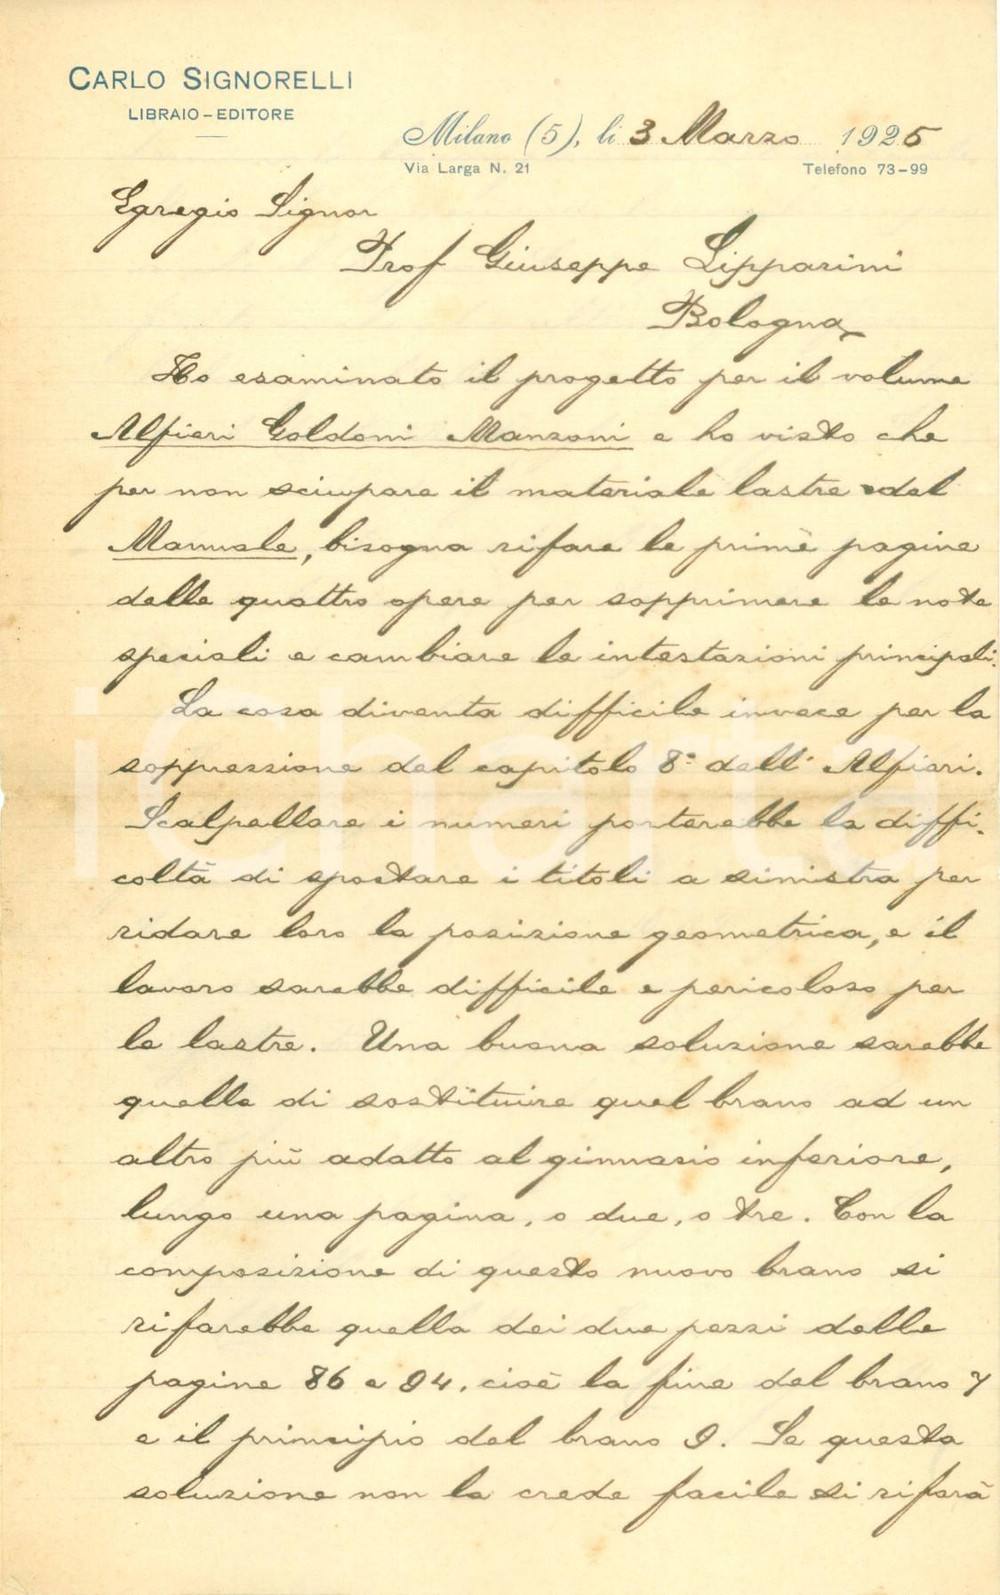 CARLO SIGNORELLI
LIBRAIO-EDITORE
Milano (5), li 3 Marzo 1925
Via Larga N. 21 Telefono 73-99
Egregio Signor
Prof Giuseppe Lipparini
Bologna
Ho esaminato il progetto per il volume
Alfieri Goldoni Manzoni e ho visto che
per non sciupare il materiale lastre del
Manuale, bisogna rifare le prime pagine
delle quattro opere per sopprimere le note
speciali e cambiare le intestazioni principali.
La cosa diventa difficile invece per la
soppressione del capitolo 8º dell'Alfieri.
Scalpellare i numeri porterebbe la diffi-
coltà di spostare i titoli a sinistra per
ridare loro la posizione geometrica, e il
lavoro sarebbe difficile e pericoloso per
le lastre. Una buona soluzione sarebbe
quella di sostituire quel brano ad un
altro più adatto al ginnasio inferiore,
lungo una pagina, o due, o tre. Con la
composizione di questo nuovo brano si
rifarebbe quella dei due pezzi delle
pagine 86 e 94, cioè la fine del brano 7
e il principio del brano 9. Se questa
soluzione non la crede facile si rifarà
iCharta